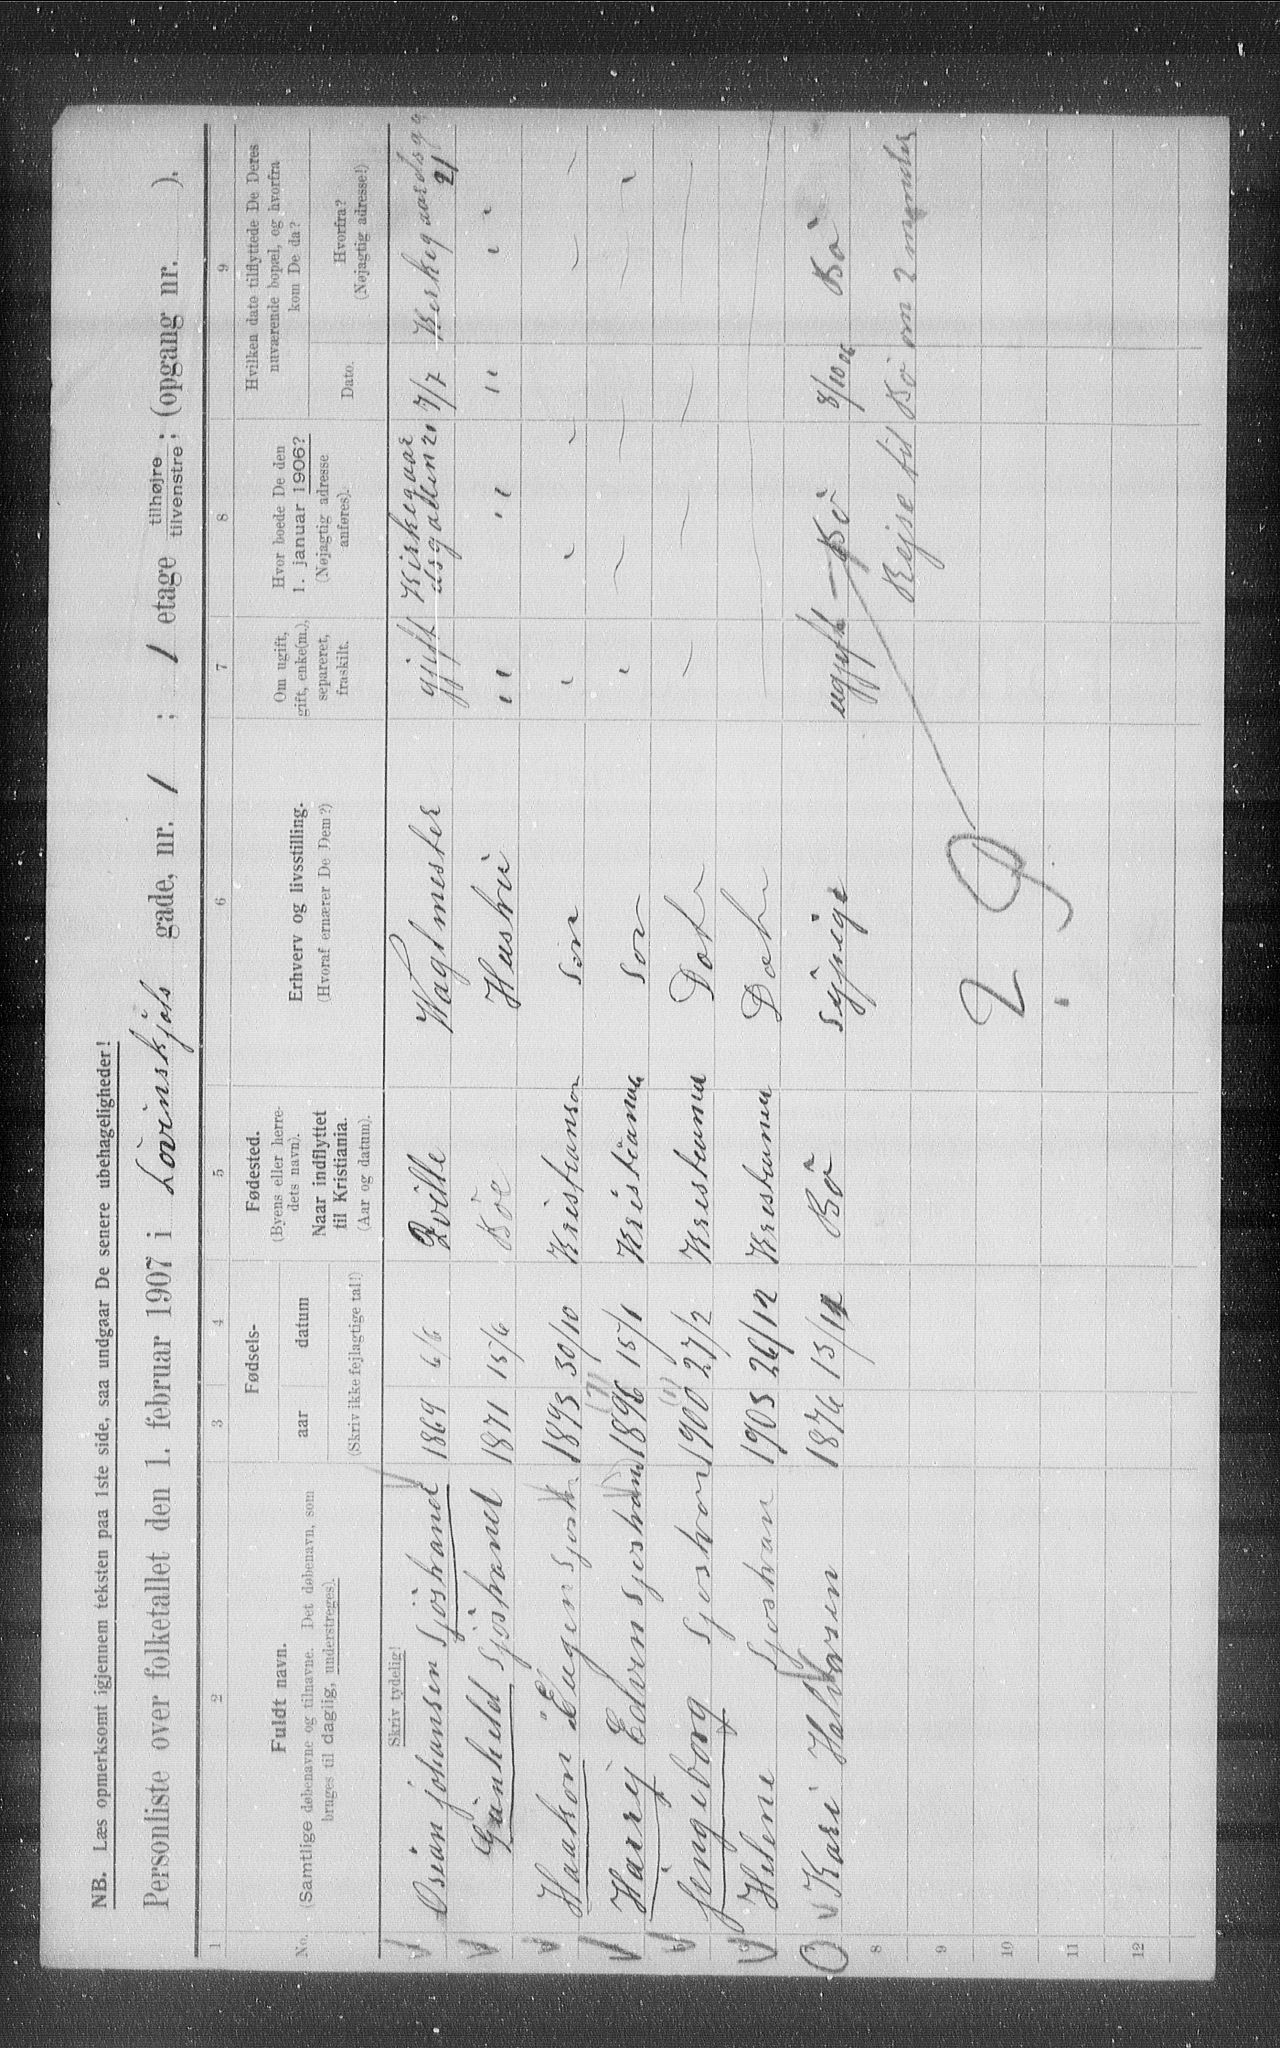 NB. Læs opmerksomt igjennem teksten paa 1ste side, saa undgaar De senere ubehageligheder!
Personliste over folketallet den 1. februar 1907 i Lovinskjols gade, nr. 1 ; 1 etage tilhøjre/tilvenstre; (opgang nr. ).
1 2 3 4 5 6 7 8 9
No.
Fuldt navn.
(Samtlige døbenavne og tilnavne. Det døbenavn, som
bruges til daglig, understreges).
Fødsels-
aar datum
(Skriv ikke fejlagtige tal!)
Fødested.
(Byens eller herre-
dets navn).
Naar indflyttet
til Kristiania.
(Aar og datum).
Erhverv og livsstilling.
(Hvoraf ernærer De Dem?)
Om ugift,
gift, enke(m.),
separeret,
fraskilt.
Hvor boede De den
1. januar 1906?
(Nøjagtig adresse
anføres).
Hvilken dato tilflyttede De Deres
nuværende bopæl, og hvorfra
kom De da?
Dato.
Hvorfra?
(Nøjagtig adresse!)
Skriv tydelig!
Osian Johansen Sjöstrand 1869 6/6 Qville Vagtmester gift Kirkegaardsgatten 21 7/7 Kirkegaardsga 21
Gunhild Sjöstrand 1871 15/6 Böe Hustru " " " "
Haakon Eugen Sjost. 1893 30/10 Kristiania Søn
Harry Edvin Sjöstrand 1896 15/1 Kristiania Son
Jengeborg Sjostran 1900 27/2 Kristiania Dot
Helene Sjostran 1903 26/12 Kristiania Dot
Kari Halvorsen 1876 13/12 Bö sypige ugift Bö 8/10 06 Bö
8 Rejse til Bö om 2 maaneder
9
10
11
12